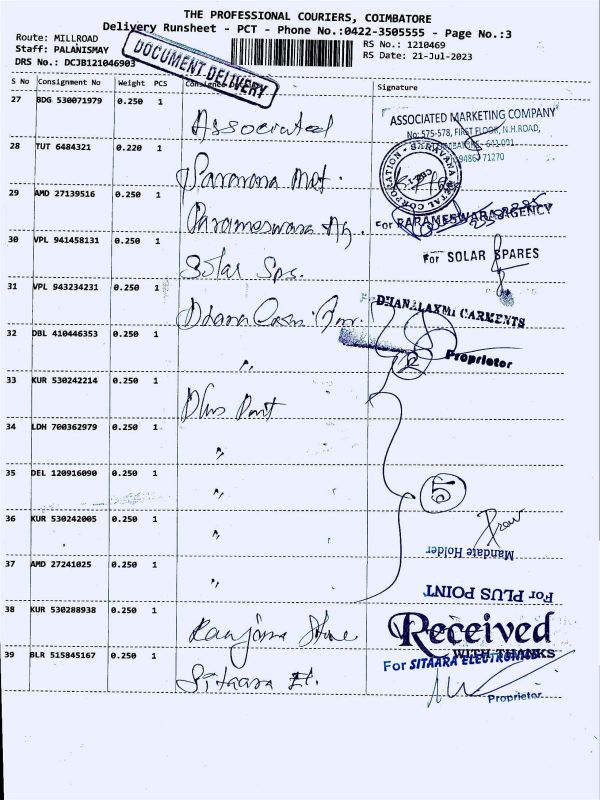 THE PROFESSIONAL COURIERS, COIMBATORE
Delivery Runsheet - PCT - Phone No.:0422-3505555 - Page No.:3
Route: MILLROAD
Staff: PALANISMAY
DRS No.: DCJB121046903
RS No.: 1210469
RS Date: 21-Jul-2023
DOCUMENT DELIVERY
S No Consignment No Weight PCS Signature
27 BDG 530071979 0.250 1 Associated
ASSOCIATED MARKETING COMPANY
No: 575-578, FIRST FLOOR, N.H.ROAD,
28 TUT 6484321 0.220 1 Saravana Met.
71270
SARAVANA METAL CORPORATION
29 AMD 27139516 0.250 1 Parameswara Ag.
For PARAMESWARA AGENCY
30 VPL 941458131 0.250 1 Solar Sps.
For SOLAR SPARES
31 VPL 943234231 0.250 1 Dhana
DHANALAXMI GARMENTS
32 DBL 410446353 0.250 1 〃
2
Proprietor
33 KUR 530242214 0.250 1 Plus Point
34 LDH 700362979 0.250 1 〃
35 DEL 120916090 0.250 1 〃
5
36 KUR 530242005 0.250 1 〃
Mandate Holder
37 AMD 27241025 0.250 1 〃
For PLUS POINT
38 KUR 530288938 0.250 1
Received
WITH THANKS
39 BLR 515845167 0.250 1 Sitaara El.
For SITAARA ELECTRONICS
Proprietor